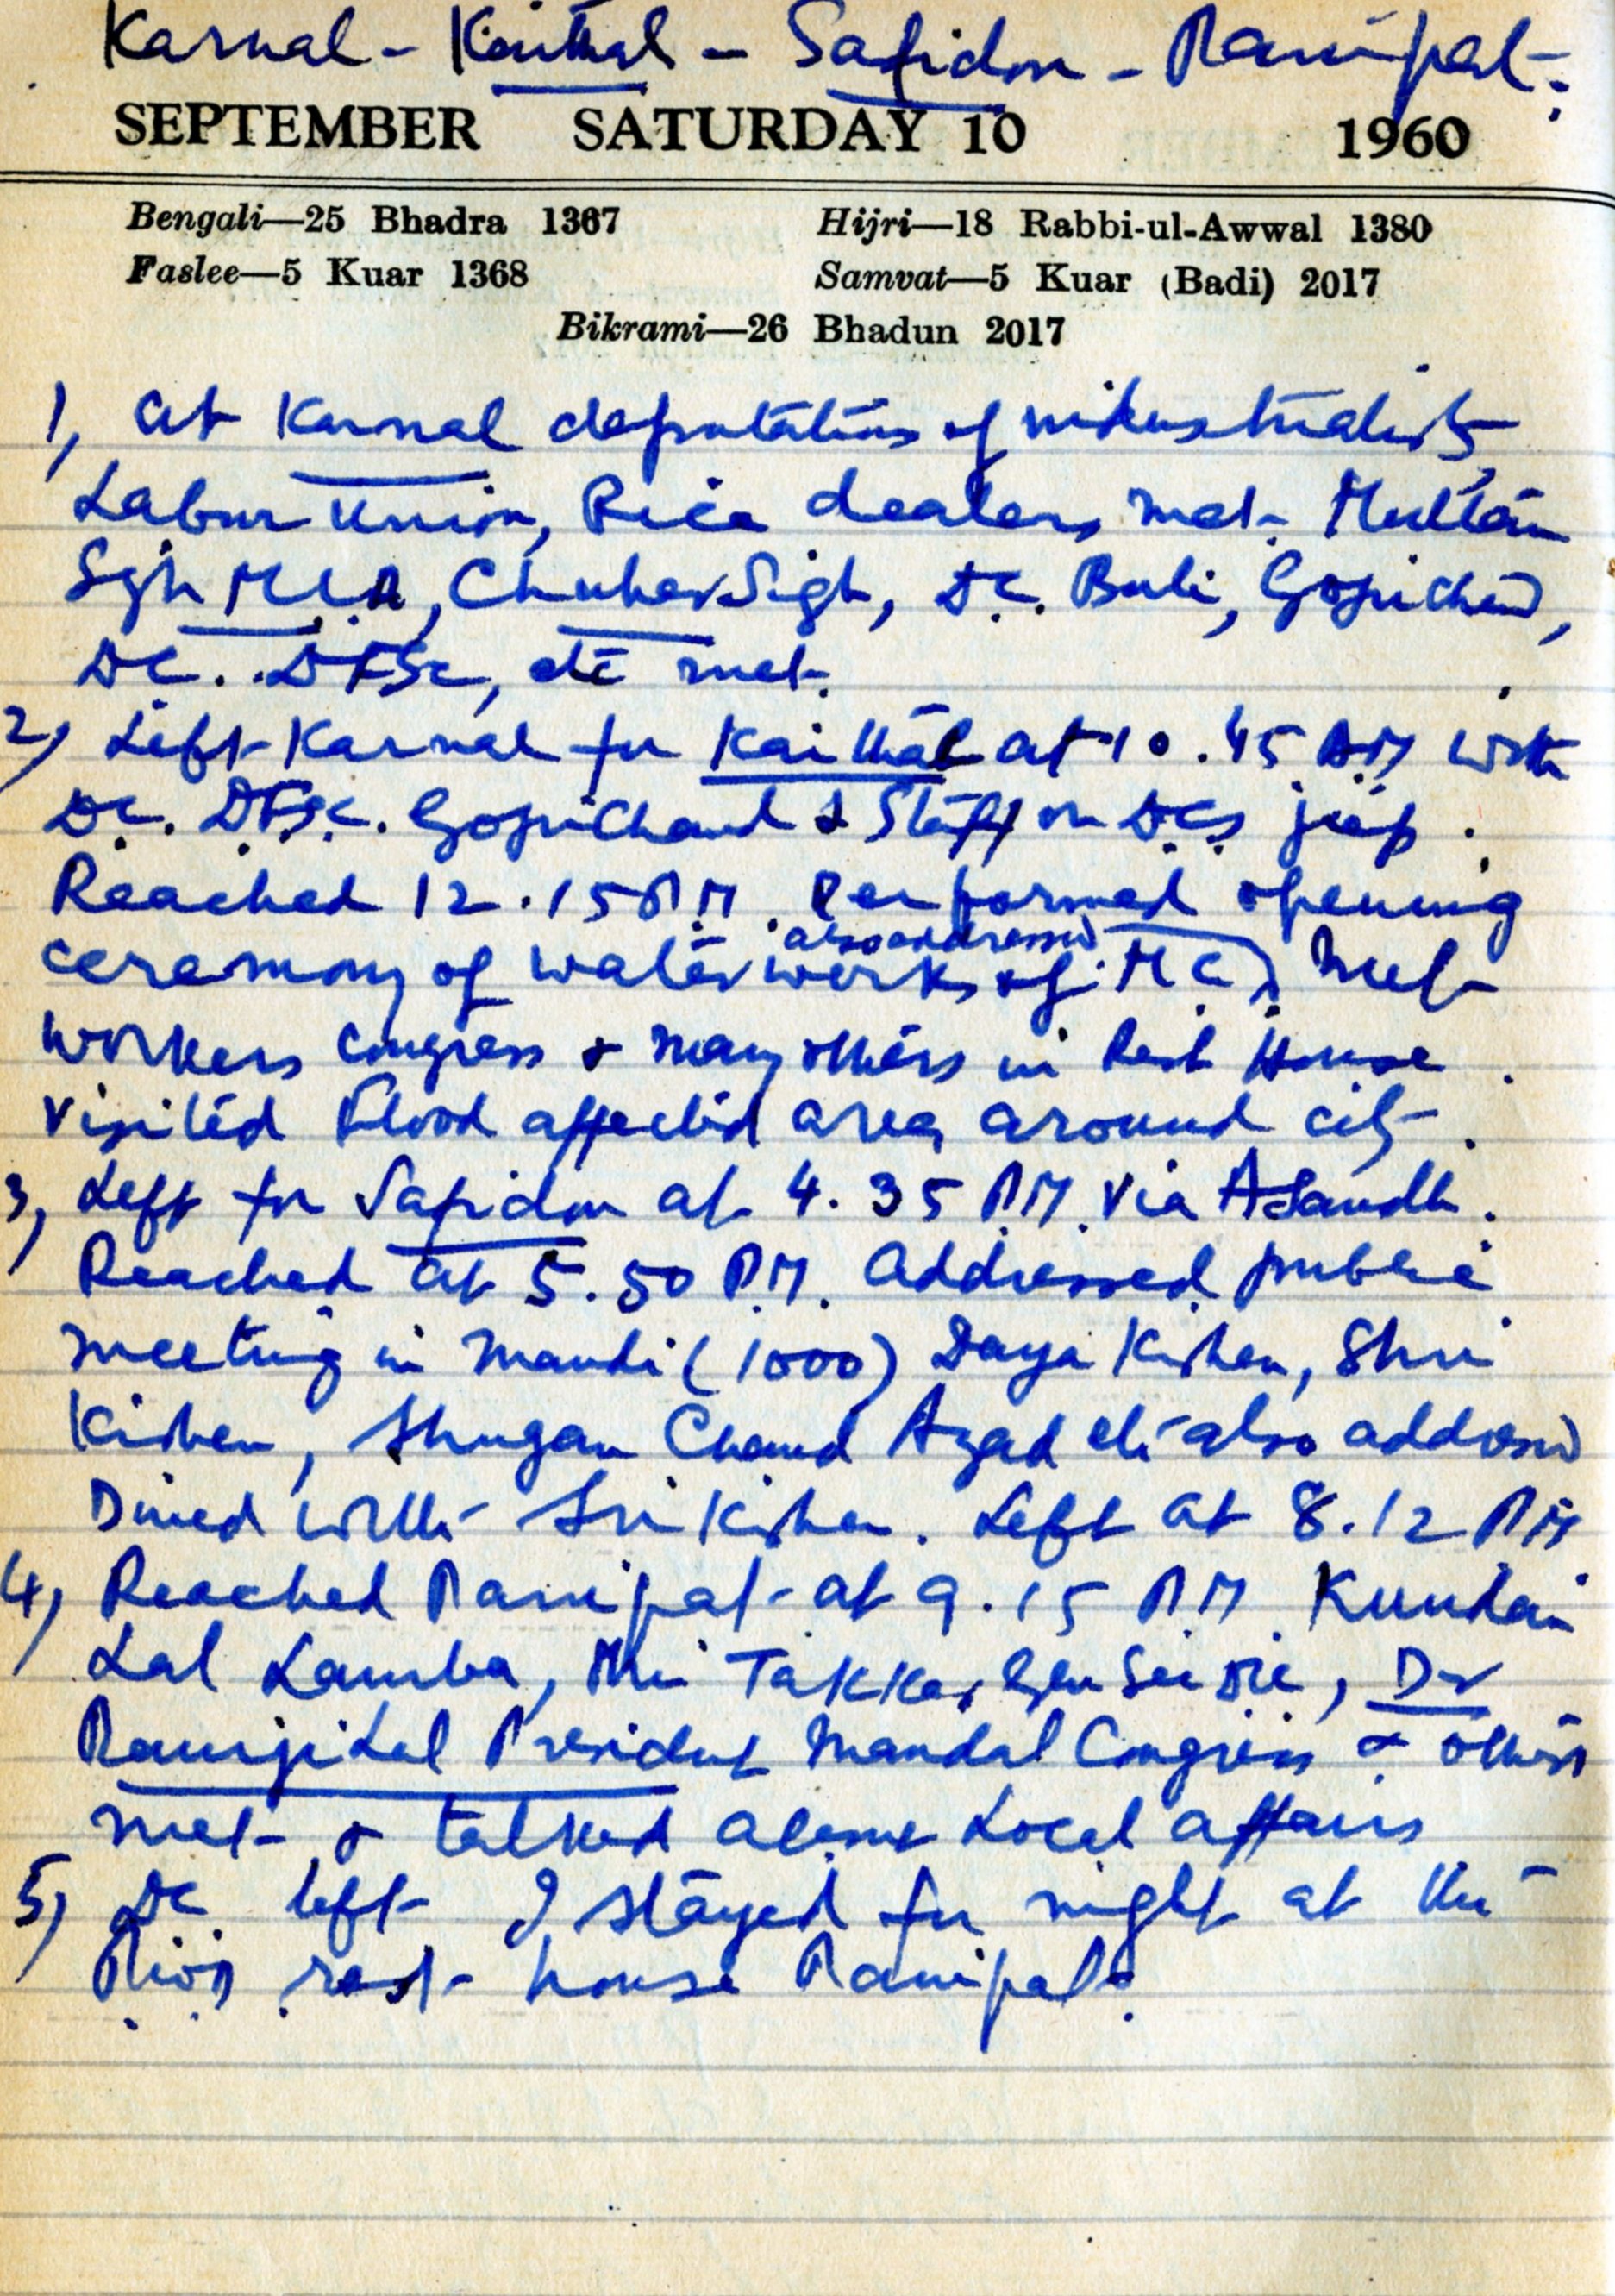 Karnal - Kaithal - Safidon - Panipat.
SEPTEMBER SATURDAY 10 1960
Bengali—25 Bhadra 1367 Hijri—18 Rabbi-ul-Awwal 1380
Faslee—5 Kuar 1368 Samvat—5 Kuar (Badi) 2017
Bikrami—26 Bhadun 2017
1, at Karnal deputations of industrialists,
Labour Union, Rice dealers met. Multan
Sgh MLA, Chuher Sigh, DC. Bali, Gopichand,
DC. DFSC, etc met.
2, Left Karnal for Kaithal at 10.45 AM with
DC. DFSC. Gopichand & Staff on DCs jeep.
Reached 12.15 PM. Performed opening
also addressed
ceremony of water works of M.C, Met
workers Congress & many others in Rest House.
Visited Flood affected area around city.
3, Left for Safidon at 4.35 P.M. Via Asandh.
Reached at 5.50 P.M. Addressed public
meeting in Mandi (1000) Daya Kishen, Shri
Kishen, Shugan Chand Azad etc also addressed
Dined with Sri Kishen. Left at 8.12 PM
4, Reached Panipat at 9.15 P.M. Kundan
Lal Lamba, Takkar, Dr
Ramji Lal President Mandal Congress & others
met & talked about Local affairs
5, DC left I stayed for night at the
rest house Panipat.